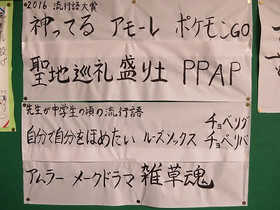 2016 流行語大賞
神ってる アモーレ ポケモンGO
聖地巡礼 盛り土 PPAP
先生が中学生の頃の流行語
チョベリグ
自分で自分をほめたい ルーズソックス チョベリバ
アムラー メークドラマ 雑草魂